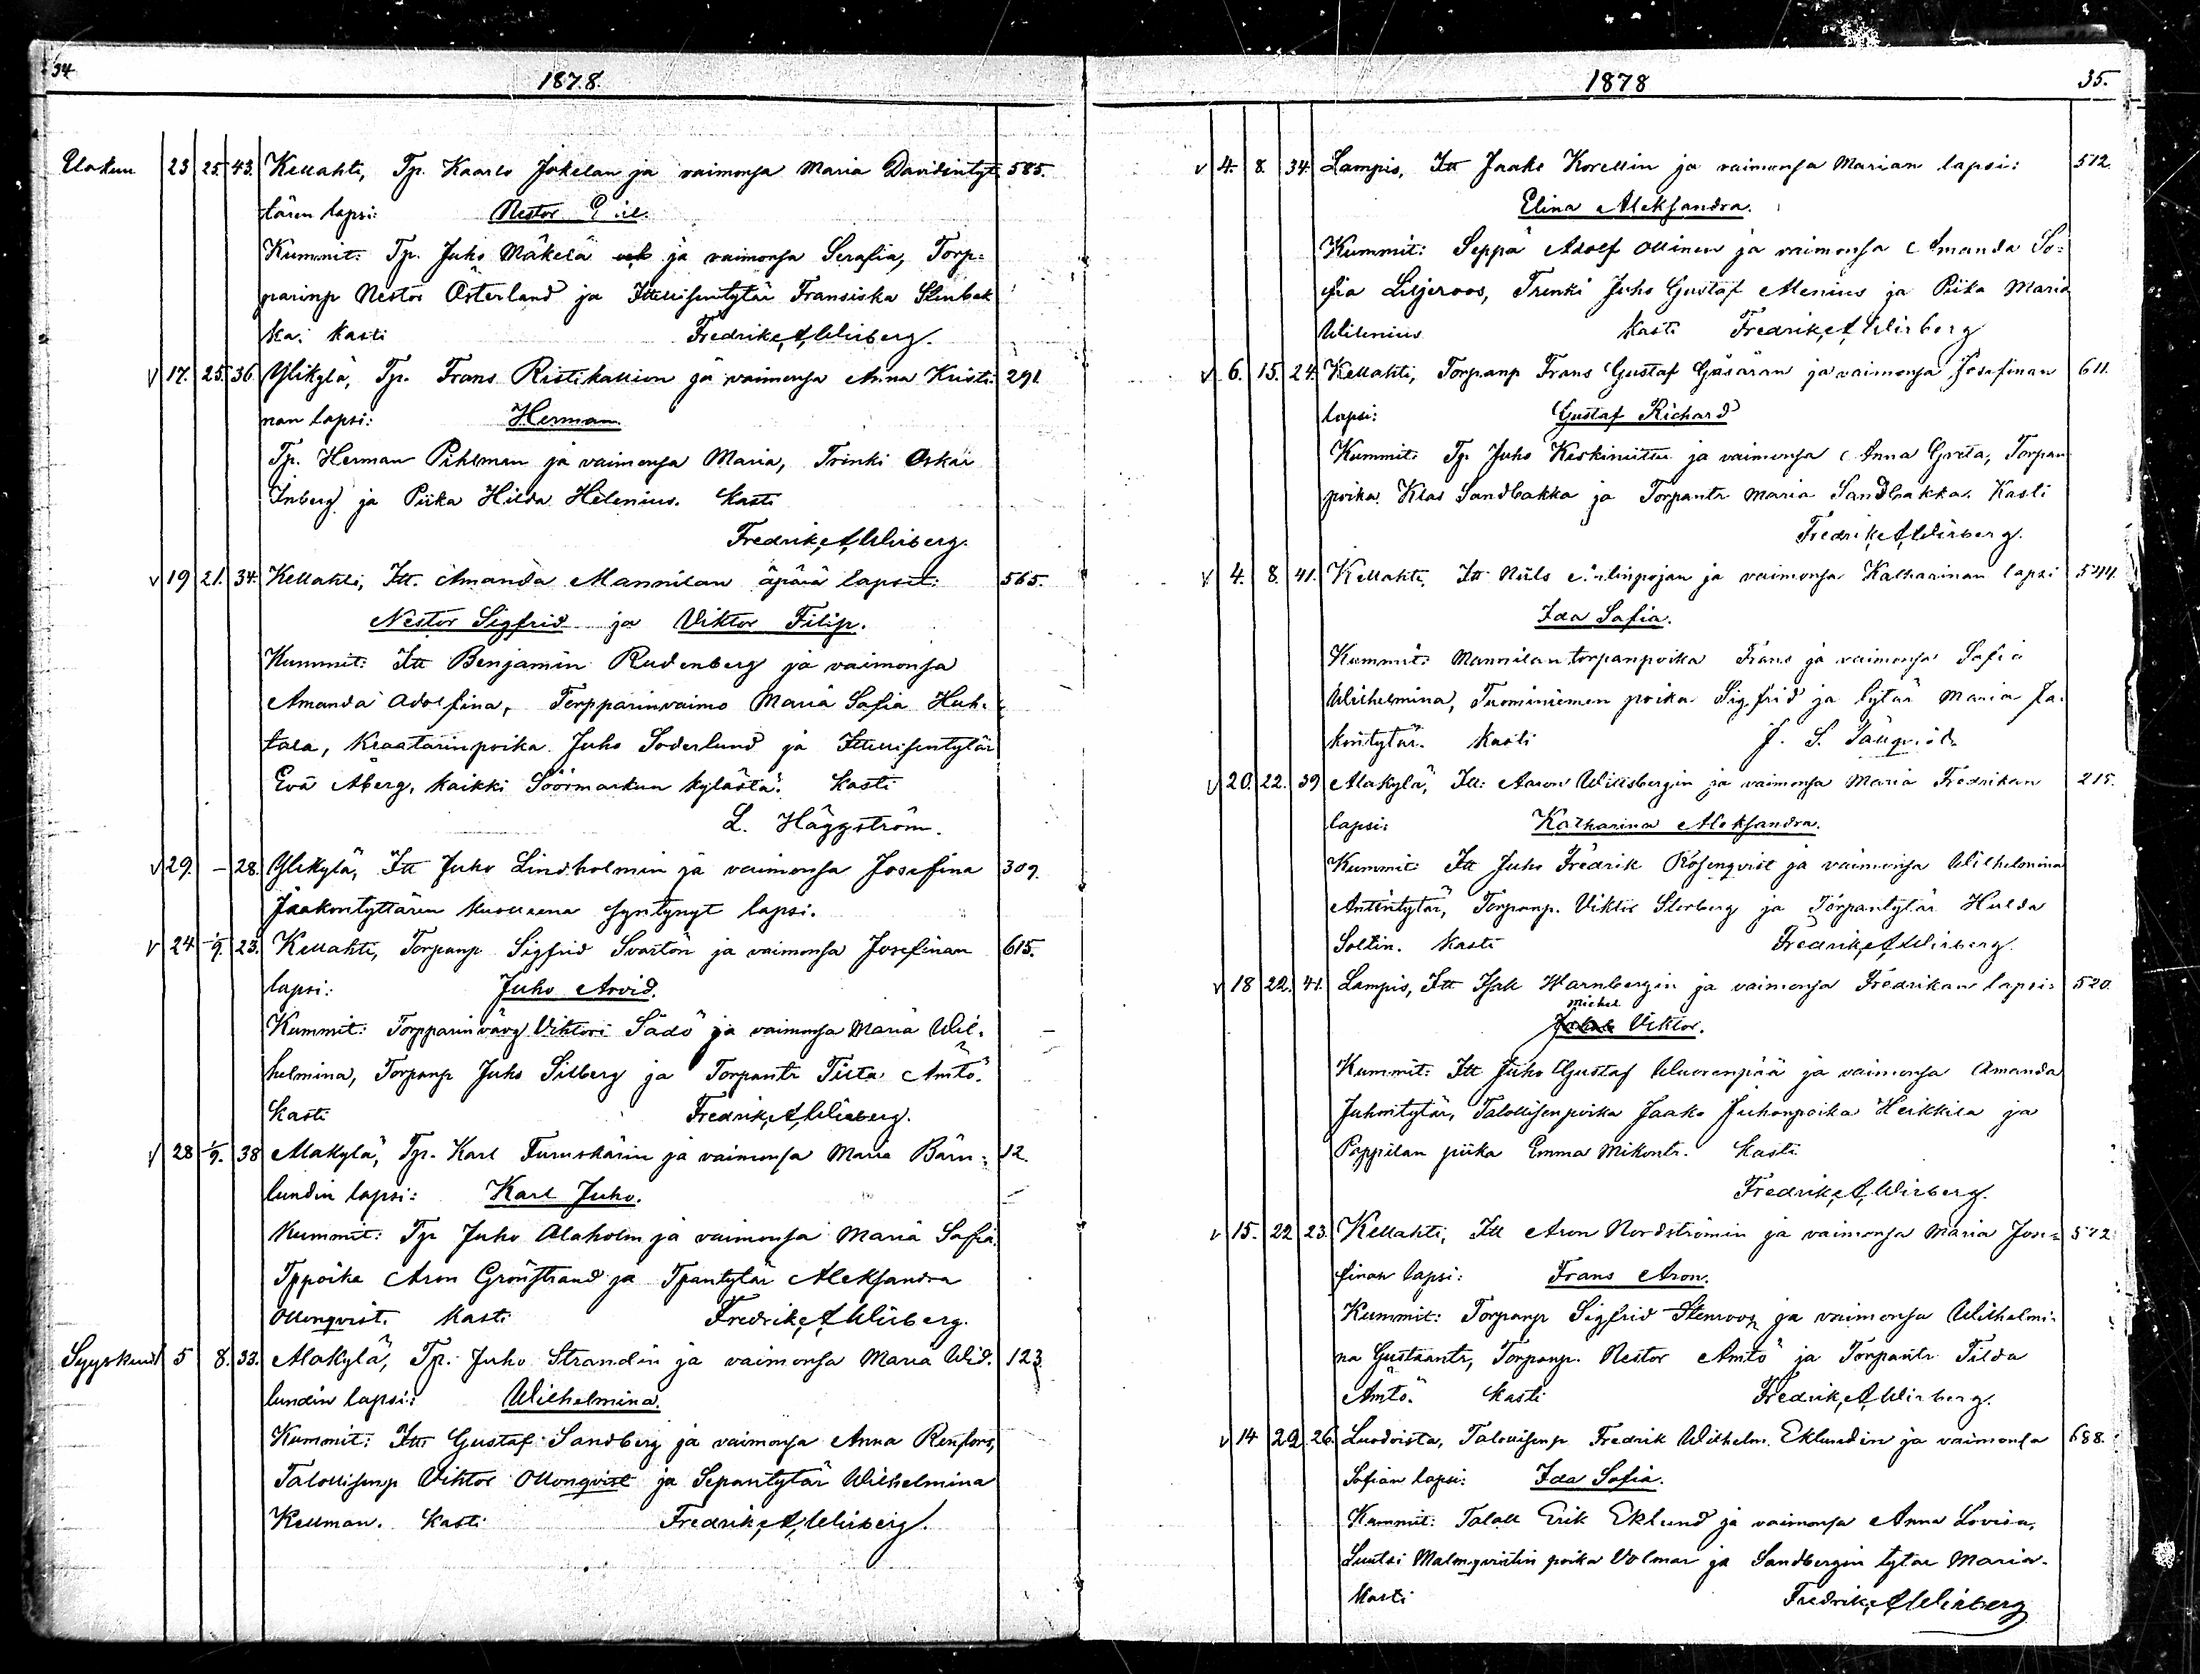 34
1878.
Elokuu 23 25. 43. Kellahti, Tp. Kaarlo Jokelan ja vaimonsa Maria Davidintyt 585.
tären lapsi: Nestor
Kummit: Tp. Juho Mäkelä ja vaimonsa Serafia, Torp=
parinp Nestor Österland ja Ittellisentytär Fransiska Stenbak
ka. Kasti Fredrik A Wirberg.
v 17. 25. 36. Ylikylä, Tp. Frans Ristikallion ja vaimonsa Anna Kristi 291.
nan lapsi: Herman
Tp. Herman Pihlman ja vaimonsa Maria, Trinki Oskar
Inberg ja Piika Hilda Helenius. Kasti
Fredrik A Wirberg.
v 19 21. 34. Kellahti, Itt. Amanda Mannilan äpärä lapset: 565.
Nestor Sigfrid ja Viktor Filip.
Kummit: Itt Benjamin Rudenberg ja vaimonsa
Amanda Adolfina, Torpparinvaimo Maria Sofia Huh=
tala, Kraatarinpoika Juho Soderlund ja Ittellisentytär
Eva Åberg, kaikki Söörmarkun kylästä. Kasti
L. Häggström.
v 29. – 28. Ylikylä, Itt Juho Lindholmin ja vaimonsa Josefina 309.
Jaakontyttären kuolleena syntynyt lapsi.
v 24 1/9. 23. Kellahti, Torpanp Sigfrid Svartön ja vaimonsa Josefinan 615.
lapsi: Juho Arvid.
Kummit: Torpparinvävy Viktori Sädö ja vaimonsa Maria Wil=
helmina, Torpanp Juho Silberg ja Torpantr Tilta Ämtö.
Kasti Fredrik A Wirberg.
v 28 1/9. 38 Alakylä, Tp. Karl Furuskärin ja vaimonsa Maria Bärn= 12.
lundin lapsi: Karl Juho.
Kummit: Tp Juho Alaholm ja vaimonsa Maria Sofia
Tppoika Aron Grönstrand ja Tpantytär Aleksandra
Ollonqvist. Kasti Fredrik A Wirberg.
Syyskuu 5 8. 33. Alakylä, Tp. Juho Strandin ja vaimonsa Maria Wid. 123
lundin lapsi: Wilhelmina.
Kummit: Itt Gustaf Sandberg ja vaimonsa Anna Renfors,
Talollisenp Viktor Ollonqvist ja Sepäntytär Wilhelmina
Kellman. Kasti Fredrik A Wirberg.
1878
35.
v 4. 8. 34. Lampis, Itt Jaako Korellin ja vaimonsa Marian lapsi: 512.
Elina Aleksandra.
Kummit: Seppä Adolf Ollinen ja vaimonsa Amanda So=
fia Liljeroos, Trenki Juho Gustaf Alenius ja Piika Maria
Wilenius Kasti Fredrik A Wirberg
v 6. 15. 24. Kellahti, Torpanp Frans Gustaf Gäsäran ja vaimonsa Josefinan 611.
lapsi: Gustaf Richard
Kummit: Tp Juho Keskiniittu ja vaimonsa Anna Greta, Torpan
poika Klas Sandbakka ja Torpantr Maria Sandbakka. Kasti
Fredrik A Wirberg.
v 4. 8. 41. Kellahti, Itt Niils ja vaimonsa Katharinan lapsi 544.
Ida Sofia.
Kummit: Mannilan torpanpoika Frans ja vaimonsa Sofia
Wilhelmina, Tuominiemen poika Sigfrid ja tytär Maria Ja=
kontytär. Kasti
v 20. 22. 39 Alakylä, Itt: Aaron Willsbergin ja vaimonsa Maria Fredrikan 215.
lapsi: Katharina Aleksandra.
Kummit: Itt Juho Fredrik Rosenqvist ja vaimonsa Wilhelmina
Antintytär, Torpanp. Viktor Storberg ja Torpantytär Hulda
Soltin. Kasti Fredrik A Wirberg.
v 18 22. 41. Lampis, Itt Isak Warnbergin ja vaimonsa Fredrikan lapsi: 520.
Michel
Viktor.
Kummit: Itt Juho Gustaf Wuorenpää ja vaimonsa Amanda
Juhontytär, Talollisenpoika Jaako Juhonpoika Heikkila ja
Pappilan piika Emma Mikontr. Kasti
Fredrik A Wirberg.
v 15. 22 23. Kellahti, Itt Aron Nordströmin ja vaimonsa Maria Jose= 572.
finan lapsi: Frans Aron.
Kummit: Torpanp Sigfrid Stenroos ja vaimonsa Wilhelmi=
na Gustaantr, Torpanp. Nestor Ämtö ja Torpantr Tilda
Ämtö. Kasti Fredrik A Wirberg.
v 14 22. 26. Luodoista, Talollisenp Fredrik Wilhelm Eklundin ja vaimonsa 688.
Sofian lapsi: Ida Sofia.
Kummit: Talall Erik Eklund ja vaimonsa Anna Lovisa,
Luutsi Malmqvistin poika Volmar ja Sandbergin tytär Maria.
Kasti Fredrik A Wirberg